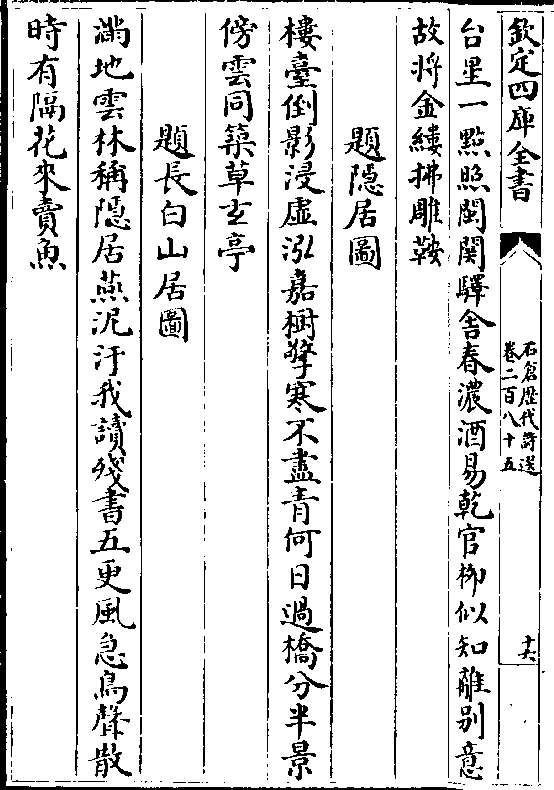 欽定四庫全書
石倉歷代詩選
卷二百八十五
十六
台星一㸃照閩闗驛舎春濃酒易乾官柳似知離别意
故將金縷拂雕鞍
題隠居圖
樓臺倒影浸虛泓嘉樹擎寒不盡青何日過橋分半景
傍雲同築草玄亭
題長白山居圖
滿地雲林稱隠居燕泥汙我讀殘書五更風急鳥聲散
時有隔花來賣魚